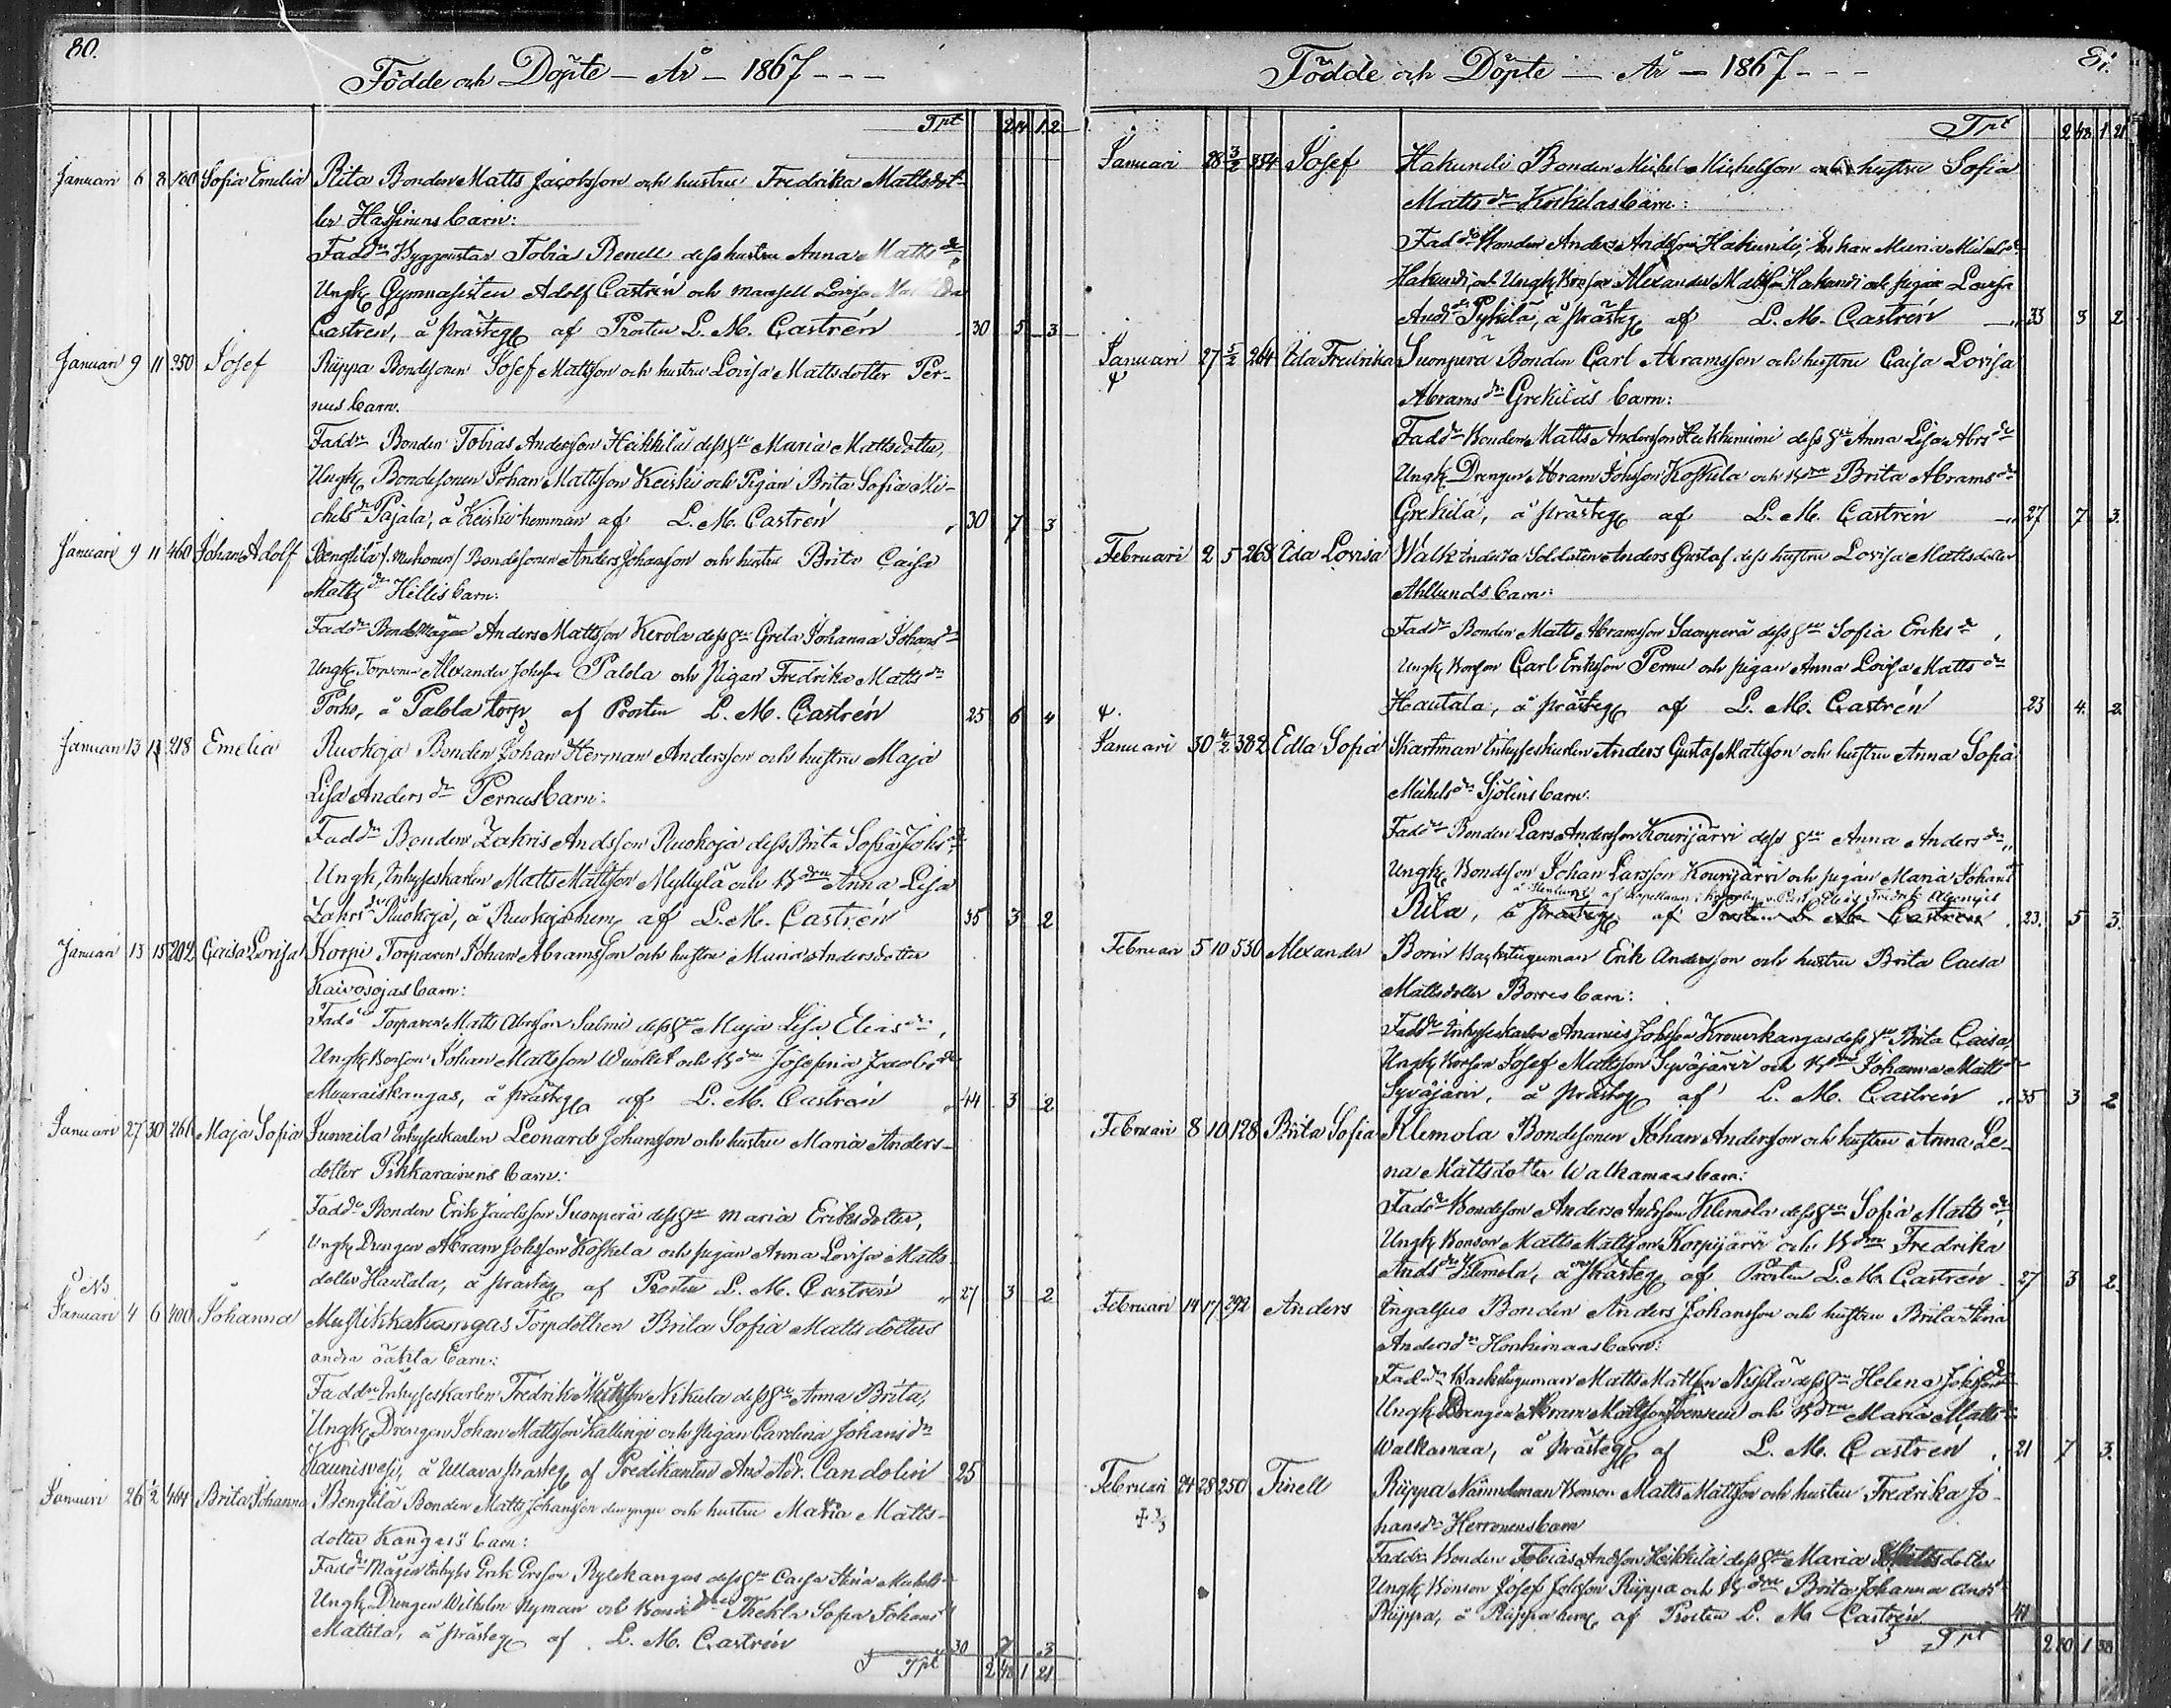 80.
Födde och Döpte — År — 1867 - - -
Tpt 2 14 1 2
Januari 6 8 100 Sofia Emelia Rita Bonden Matts Jacobsson och hustru Fredrika Mattsdot-
ter Hassinens barn:
Faddr Byggmästar Tobias Renell dess hustru Anna Matts dr
Ungk Gymnasisten Adolf Castrén och mamsell Lovisa Mathilda
Castrén, å prästeg af Prosten L. M. Castrén 30 5 3
Januari 9 11 250 Josef Rüppa Bondsonen Josef Mattsson och hustru Lovisa Mattsdotter Per-
nus barn.
Faddr Bonden Tobias Andersson Heikkilä dess hu Maria Mattsdotter,
Ungk Bondesonen Johan Mattsson Keiski och Pigan Brita Sofia Mi-
chels dr Pajala, å Keiski hemman af L. M. Castrén 30 7 3
Januari 9 11 460 Johan Adolf Bengtilä /: Muhonen / Bondesonen Anders Johansson och hustru Brita Caisa
Matts dr Hillis barn:
Faddr Bondemågen Anders Mattsson Kerola dess hu Greta Johanna Johans dr
Ungk Torparen Alexander Johsson Palola och Pigan Fredrika Matts dr
Porko, å Palola torp af Prosten L. M. Castrén 25 6 4
Januari 13 13 218 Emelia Ruokoja Bonden Johan Herman Andersson och hustru Maja
Lisa Anders dr Pernus barn:
Faddr Bonden Zakris Andsson Ruokoja dess Brita Sofia Johs dr
Ungk, Inhyseskarlen Matts Mattsson Myllylä och Bdrn Anna Lisa
Zakrs dr Ruokoja, å Ruokoja hem af L. M. Castrén 35 3 2
Januari 13 15 202 Caisa Lovisa Korpi Torparen Johan Abramsson och hustru Maria Andersdotter
Kaivosojas barn:
Faddr Torparen Matts Abrsson Salmi dess hu Maja Lisa Elias dr,
Ungk Bonson Johan Mattsson Wuollet och Bdrn Josefina Jacobs dr
Meuraiskangas, å prästeg af L. M. Castrén 44 3 2
Januari 27 30 266 Maja Sofia Junnila Inhyseskarlen Leonard Johansson och hustru Maria Anders-
dotter Pihkarainens barn:
Faddr Bonden Erik Jacobsson Suonperä dess hu Maria Eriksdotter,
Ungk Drengen Abram Johsson Koskela och pigan Anna Lovisa Matts
dotter Hautala, å prästeg af Prosten L. M. Castrén 27 3 2
NB
Januari 4 6 400 Johanna Mustikkakangas Torpdottren Brita Sofia Mattsdotters
andra oäkta barn:
Faddr Inhyseskarlen Fredrik Mattsson Nikula dess hu Anna Brita,
Ungk Drengen Johan Mattsson Kallinge och Pigan Carolina Johans dr
Kaunisvesi, å Ullava prästeg af Predikanten And Adr. Candolin 25
Januari 26 1/2 464 Brita Johanna Bengtilä Bonden Matts Johansson den yngre och hustru Maria Matts-
dotter Kangas barn:
Faddr Mågen Inhyss Erik Ersson Rylekangas dess hu Caisa Stina Michels
Ungk Drengen Wilhelm Nyman och Bonde dr Thekla Sofia Johans dr
Mattila, å prästeg af L. M. Castrén 30 7 3
Tpt 2 48 1 21
81.
Födde och Döpte — År — 1867 - - -
Tpt 2 48 1 21
Januari 28 3/2 354 Josef Hakundi Bonden Michel Michelsson och hustru Sofia
Matts dr Koskelas barn:
Faddr Bonden Anders Andersson Hakundi, Enkan Maria Michels dr
Hakundi, och Ungk Bonson Alexander Mattsson Hakundi och pigan Lovisa
Ands dr Pyhilä, å prästeg af L. M. Castrén 33 3 2
Januari 27 5/2 264 Ida Fredrika Suonperä Bonden Carl Abramsson och hustru Caisa Lovisa
Abrams dr Grekiläs barn:
Faddr Bonden Matts Andersson Heikkiniemi dess hu Anna Lisa Abrs dr
Ungk Drengen Abram Johsson Koskela och Bdrn Brita Abrams dr
Grekilä, å prästeg af L. M. Castrén 27 7 3.
Februari 2 5 268 Ida Lovisa Walk Indelta Soldaten Anders Gustaf dess hustru Lovisa Mattsdotter
Ahllunds barn:
Faddr Bonden Matts Abramsson Suonperä dess hu Sofia Eriks dr,
Ungk Bonson Carl Eriksson Pernu och pigan Anna Lovisa Matts dr
Hautala, å prästeg af L. M. Castrén 23 4. 2.
Januari 30 4/2 382 Edla Sofia Skartman Inhyseskarlen Anders Gustaf Mattsson och hustru Anna Sofia
Michels dr Sjölins barn.
Faddr Bonden Lars Andersson Kourijärvi dess hu Anna Anders dr,
Ungk Bondson Johan Larsson Kourijärvi och pigan Maria Johans dr
Rita, å prästeg af Prosten L. M. Castrén 23. 5 3.
Februari 5 10 530 Alexander Borin Backstuguman Erik Andersson och hustru Brita Caisa
Mattsdotter Borres barn:
Faddr Inhyseskarlen Ananias Johsson Krouvkangas dess hu Brita Caisa,
Ungk Bonson Josef Mattsson Syväjärvi och Bdrn Johanna Matts dr
Syväjärvi, å prästeg af L. M. Castrén 35 3 2
Februari 8 10 128 Brita Sofia Klemola Bondesonen Johan Andersson och hustru Anna Le-
na Mattsdotter Walkamaas barn:
Faddr Bondeson Anders Andsson Klemola dess hu Sofia Matts dr,
Ungk Bonson Matts Mattsson Korpijärvi och Bdrn Fredrika
Ands dr Klemola, å prästeg af Prosten L. M. Castrén 27 3 2.
Februari 14 17 292 Anders Ingalsuo Bonden Anders Johansson och hustru Brita Stina
Anders dr Honkimaas barn:
Faddr Backstuguman Matts Mattsson Nisula dess hu Helena Johans dr
Ungk Drengen Abram Mattsson och Bdrn Maria Matts dr
Walkamaa, å prästeg af L. M. Castrén 21 7 3.
Februari 24 28 250 Finell Rüppa Nämndeman Bonson Matts Mattsson och hustru Fredrika Jo-
hans dr Herronens barn
Faddr Bonden Tobias Andsson Heikkilä dess hu Maria Mattsdotter
Ungk Bonson Josef Johsson Rüppa och Bdrn Brita Johanna Ands dr
Rüppa, å Rüppa hem af Prosten L. M. Castrén 41
Tpt 2 80 1 38